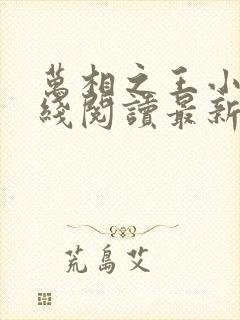 萬相之王小
綫閱讀最新
荒島艾